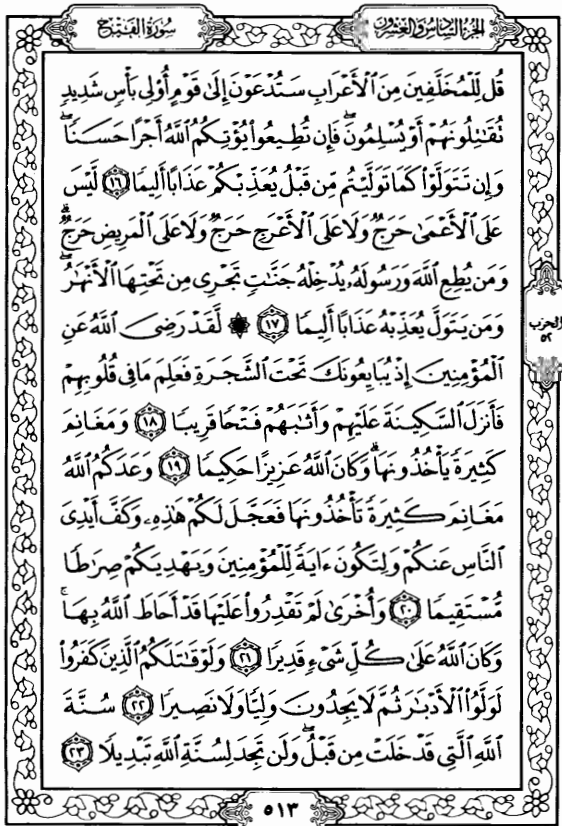 الجزء السادس والعشرون
سُورَةُ الفَتْحِ
قُل لِّلْمُخَلَّفِينَ مِنَ ٱلْأَعْرَابِ سَتُدْعَوْنَ إِلَىٰ قَوْمٍ أُو۟لِى بَأْسٍ شَدِيدٍ
تُقَٰتِلُونَهُمْ أَوْ يُسْلِمُونَ ۖ فَإِن تُطِيعُوا۟ يُؤْتِكُمُ ٱللَّهُ أَجْرًا حَسَنًا ۖ
وَإِن تَتَوَلَّوْا۟ كَمَا تَوَلَّيْتُم مِّن قَبْلُ يُعَذِّبْكُمْ عَذَابًا أَلِيمًا ١٦ لَّيْسَ
عَلَى ٱلْأَعْمَىٰ حَرَجٌ وَلَا عَلَى ٱلْأَعْرَجِ حَرَجٌ وَلَا عَلَى ٱلْمَرِيضِ حَرَجٌ ۗ
وَمَن يُطِعِ ٱللَّهَ وَرَسُولَهُۥ يُدْخِلْهُ جَنَّٰتٍ تَجْرِى مِن تَحْتِهَا ٱلْأَنْهَٰرُ ۖ
وَمَن يَتَوَلَّ يُعَذِّبْهُ عَذَابًا أَلِيمًا ١٧ ۞ لَّقَدْ رَضِىَ ٱللَّهُ عَنِ
ٱلْمُؤْمِنِينَ إِذْ يُبَايِعُونَكَ تَحْتَ ٱلشَّجَرَةِ فَعَلِمَ مَا فِى قُلُوبِهِمْ
فَأَنزَلَ ٱلسَّكِينَةَ عَلَيْهِمْ وَأَثَٰبَهُمْ فَتْحًا قَرِيبًا ١٨ وَمَغَانِمَ
كَثِيرَةً يَأْخُذُونَهَا ۗ وَكَانَ ٱللَّهُ عَزِيزًا حَكِيمًا ١٩ وَعَدَكُمُ ٱللَّهُ
مَغَانِمَ كَثِيرَةً تَأْخُذُونَهَا فَعَجَّلَ لَكُمْ هَٰذِهِۦ وَكَفَّ أَيْدِىَ
ٱلنَّاسِ عَنكُمْ وَلِتَكُونَ ءَايَةً لِّلْمُؤْمِنِينَ وَيَهْدِيَكُمْ صِرَٰطًا
مُّسْتَقِيمًا ٢٠ وَأُخْرَىٰ لَمْ تَقْدِرُوا۟ عَلَيْهَا قَدْ أَحَاطَ ٱللَّهُ بِهَا ۚ
وَكَانَ ٱللَّهُ عَلَىٰ كُلِّ شَىْءٍ قَدِيرًا ٢١ وَلَوْ قَٰتَلَكُمُ ٱلَّذِينَ كَفَرُوا۟
لَوَلَّوُا۟ ٱلْأَدْبَٰرَ ثُمَّ لَا يَجِدُونَ وَلِيًّا وَلَا نَصِيرًا ٢٢ سُنَّةَ
ٱللَّهِ ٱلَّتِى قَدْ خَلَتْ مِن قَبْلُ ۖ وَلَن تَجِدَ لِسُنَّةِ ٱللَّهِ تَبْدِيلًا ٢٣
الحزب
٥٢
٥١٣